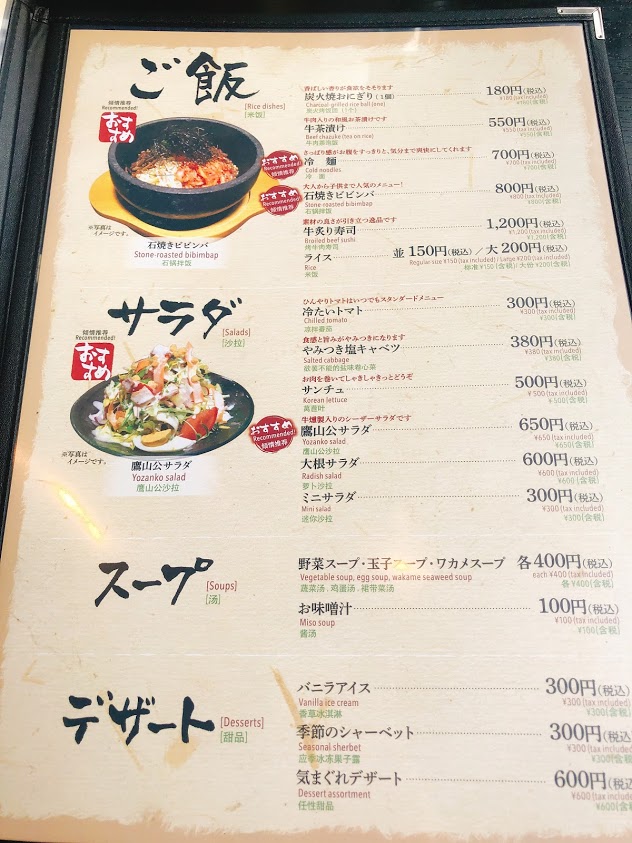 ご飯
[Rice dishes]
[米饭]
倾情推荐
Recommended!
おすすめ
※写真は
イメージです。
石焼きビビンバ
Stone-roasted bibimbap
石锅拌饭
香ばしい香りが食欲をそそります
炭火焼おにぎり(1個) 180円(税込)
Charcoal-grilled rice ball (one) ¥180 (tax included)
炭火烤饭团(1个) ¥180(含税)
牛肉入りの和風お茶漬けです
牛茶漬け 550円(税込)
Beef chazuke (tea on rice) ¥550 (tax included)
牛肉茶泡饭 ¥550(含税)
さっぱり感がお腹をすっきりと、気分まで爽快にしてくれます
冷麺 700円(税込)
Cold noodles ¥700 (tax included)
冷面 ¥700(含税)
おすすめ
Recommended!
倾情推荐
大人から子供まで人気のメニュー!
石焼きビビンバ 800円(税込)
Stone-roasted bibimbap ¥800 (tax included)
石锅拌饭 ¥800(含税)
おすすめ
Recommended!
倾情推荐
素材の良さが引き立つ逸品です
牛炙り寿司 1,200円(税込)
Broiled beef sushi ¥1,200 (tax included)
烤牛肉寿司 ¥1,200(含税)
ライス 並150円(税込)/大200円(税込)
Rice Regular size ¥150 (tax included)/ Large ¥200 (tax included)
米饭 标准¥150(含税)/大份¥200(含税)
サラダ
[Salads]
[沙拉]
倾情推荐
Recommended!
おすすめ
※写真は
イメージです。
鷹山公サラダ
Yozanko salad
鹰山公沙拉
ひんやりトマトはいつでもスタンダードメニュー
冷たいトマト 300円(税込)
Chilled tomato ¥300 (tax included)
凉拌番茄 ¥300(含税)
食感と旨みがやみつきになります
やみつき塩キャベツ 380円(税込)
Salted cabbage ¥380 (tax included)
欲罢不能的盐味卷心菜 ¥380(含税)
お肉を巻いてしゃきしゃきっとどうぞ
サンチュ 500円(税込)
Korean lettuce ¥500 (tax included)
莴苣叶 ¥500(含税)
おすすめ
Recommended!
倾情推荐
牛燻製入りのシーザーサラダです
鷹山公サラダ 650円(税込)
Yozanko salad ¥650 (tax included)
鹰山公沙拉 ¥650(含税)
大根サラダ 600円(税込)
Radish salad ¥600 (tax included)
萝卜沙拉 ¥600(含税)
ミニサラダ 300円(税込)
Mini salad ¥300 (tax included)
迷你沙拉 ¥300(含税)
スープ
[Soups]
[汤]
野菜スープ・玉子スープ・ワカメスープ 各400円(税込)
Vegetable soup, egg soup, wakame seaweed soup each ¥400 (tax included)
蔬菜汤・鸡蛋汤・裙带菜汤 各¥400(含税)
お味噌汁 100円(税込)
Miso soup ¥100 (tax included)
酱汤 ¥100(含税)
デザート
[Desserts]
[甜品]
バニラアイス 300円(税込)
Vanilla ice cream ¥300 (tax included)
香草冰淇淋 ¥300(含税)
季節のシャーベット 300円(税込)
Seasonal sherbet ¥300 (tax included)
应季冰冻果子露 ¥300(含税)
気まぐれデザート 600円(税込)
Dessert assortment ¥600 (tax included)
任性甜品 ¥600(含税)